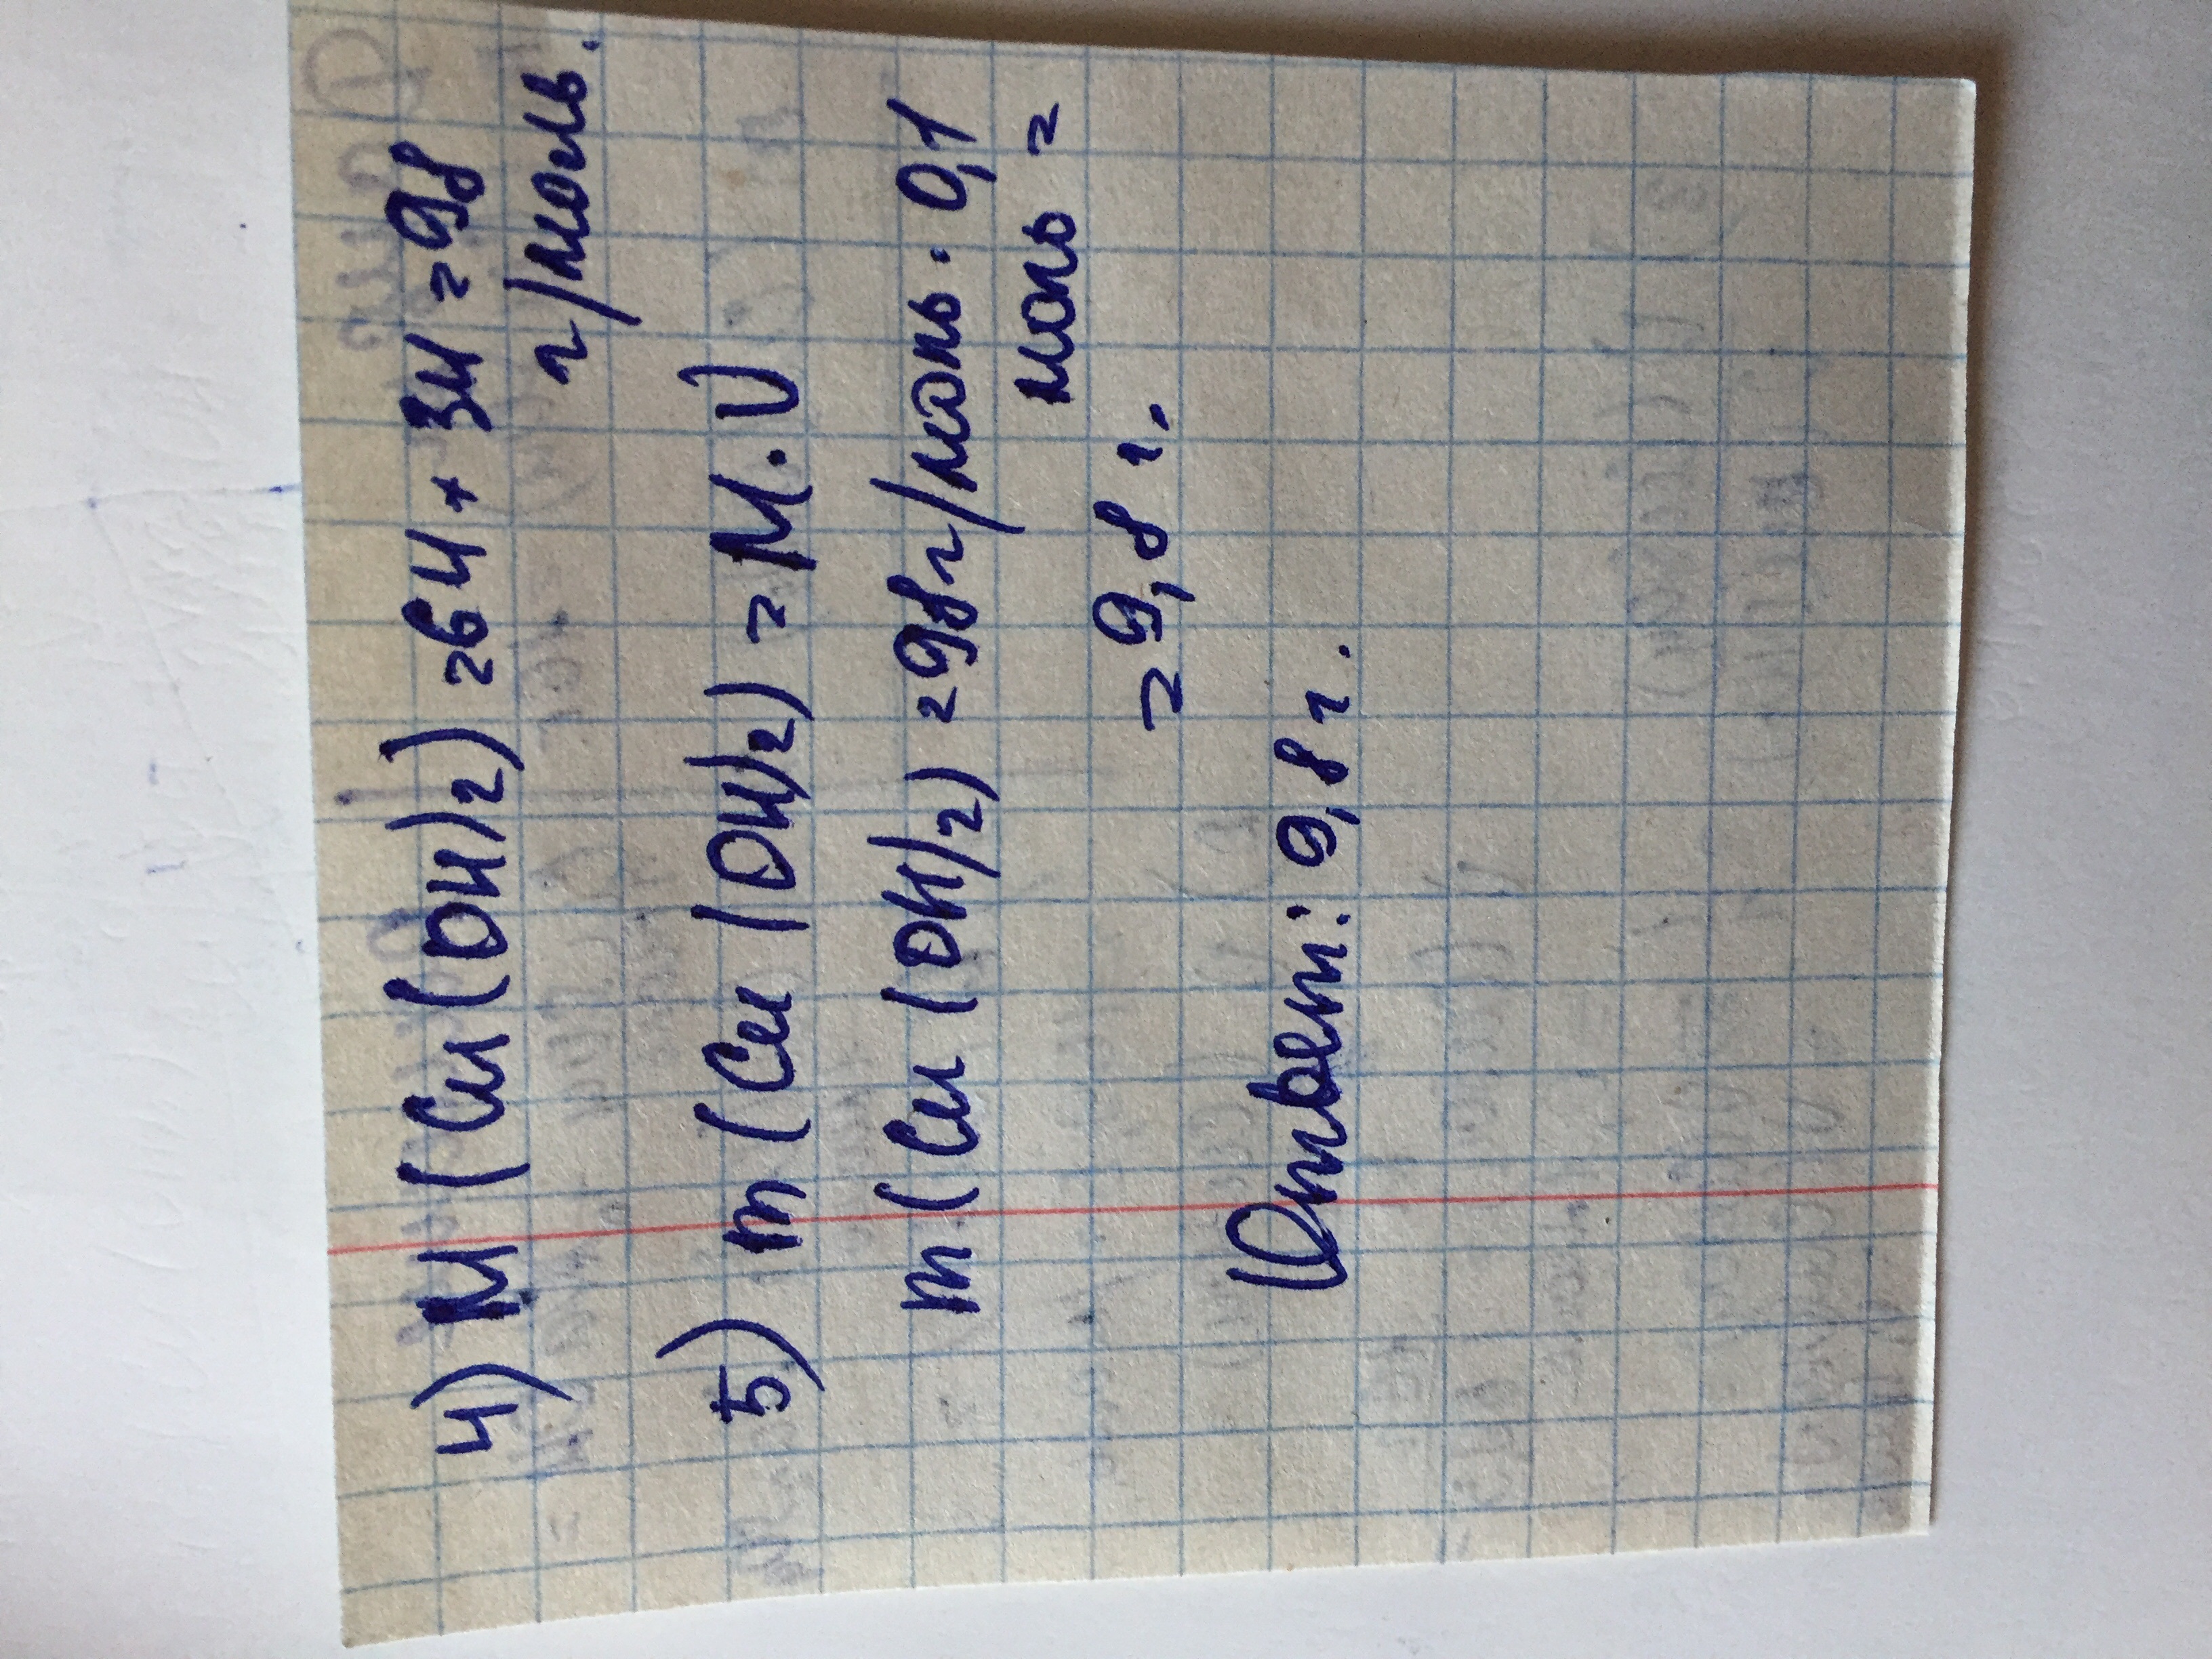 4) M (Cu(OH)₂) = 64 + 34 = 98
г/моль.
5) m (Cu(OH)₂) = M · ν
m (Cu(OH)₂) = 98 г/моль · 0,1
моль =
= 9,8 г.
Ответ: 9,8 г.